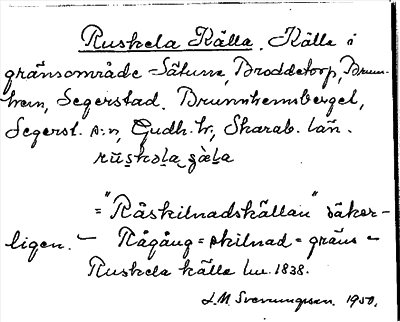 Ruskela Källa. Källa i
gränsområde Sätuna, Broddetorp, Brunn-
hem, Segerstad. Brunnhemsberget,
Segerst. s:n, Gudh. hr, Skarab. län.
ruskəla ɕäla
="Råskilnadskällan" säker-
ligen. – Rågång = skilnad = gräns –
Ruskela källa 1838.
L.M. Svenungsson. 1950.